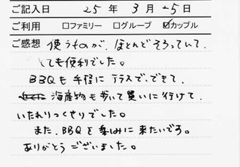 ご記入日 25年 3月 5日
ご利用 □ファミリー □グループ ☑カップル
ご感想 使うものが、ほとんどそろっていて、
とても便利でした。
BBQも手軽にテラスでできて、
海産物も歩いて買いに行けて、
いたれりつくせりでした。
また、BBQを楽しみに来たいです。
ありがとうございました。